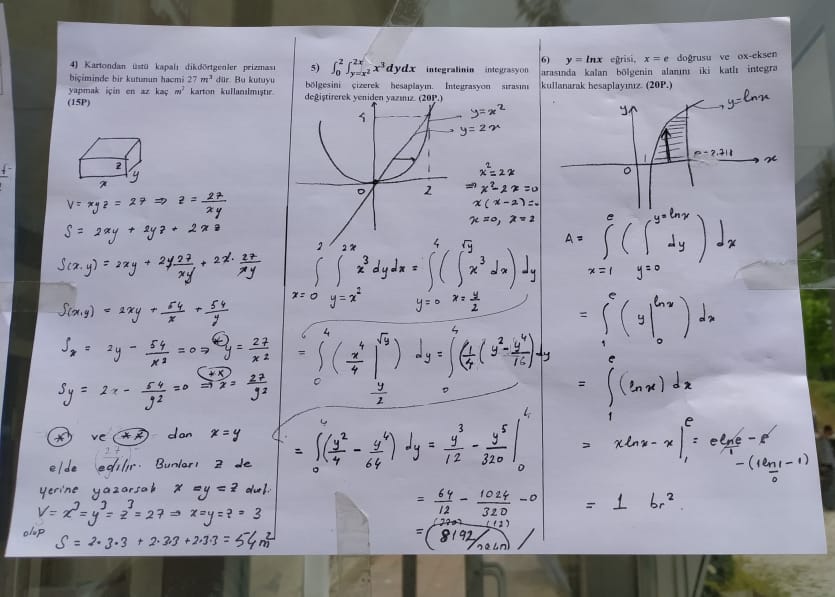 4) Kartondan üstü kapalı dikdörtgenler prizması
biçiminde bir kutunun hacmi 27 m³ dür. Bu kutuyu
yapmak için en az kaç m² karton kullanılmıştır.
(15P)
z
x y
V = xyz = 27 ⇒ z = 27/xy
S = 2xy + 2yz + 2xz
S(x,y) = 2xy + 2y 27/xy + 2x. 27/xy
S(x,y) = 2xy + 54/x + 54/y
Sx = 2y - 54/x² = 0 ⇒ (*) y = 27/x²
Sy = 2x - 54/y² = 0 ⇒ (**) x = 27/y²
(*) ve (**) dan x=y
elde edilir. Bunları z de
yerine yazarsak x=y=z
V = x³ = y³ = z³ = 27 ⇒ x=y=z = 3
olup
S = 2.3.3 + 2.3.3 + 2.3.3 = 54 m²
5) ∫₀² ∫_{y=x²}^{2x} x³dydx integralinin integrasyon
bölgesini çizerek hesaplayın. İntegrasyon sırasını
değiştirerek yeniden yazınız. (20P.)
4
y=x²
y=2x
0 2
x²=2x
⇒ x²-2x=0
x(x-2)=0
x=0, x=2
∫_{x=0}^{2} ∫_{y=x²}^{2x} x³ dydx = ∫_{y=0}^{4} ( ∫_{x=y/2}^{√y} x³ dx ) dy
= ∫₀⁴ ( x⁴/4 |_{y/2}^{√y} ) dy = ∫₀⁴ 1/4 ( y² - y⁴/16 ) dy
= ∫₀⁴ ( y²/4 - y⁴/64 ) dy = y³/12 - y⁵/320 |₀⁴
= 64/12 - 1024/320 - 0
(320) (12)
= 8192/
6) y = lnx eğrisi, x = e doğrusu ve ox-eksen
arasında kalan bölgenin alanını iki katlı integra
kullanarak hesaplayınız. (20P.)
y
y=lnx
0 1 e=2.718 x
A = ∫_{x=1}^{e} ( ∫_{y=0}^{y=lnx} dy ) dx
= ∫₁ᵉ ( y |₀^{lnx} ) dx
= ∫₁ᵉ (lnx) dx
= xlnx - x |₁ᵉ = elne - e
1
- (1ln1 - 1)
0
= 1 br².